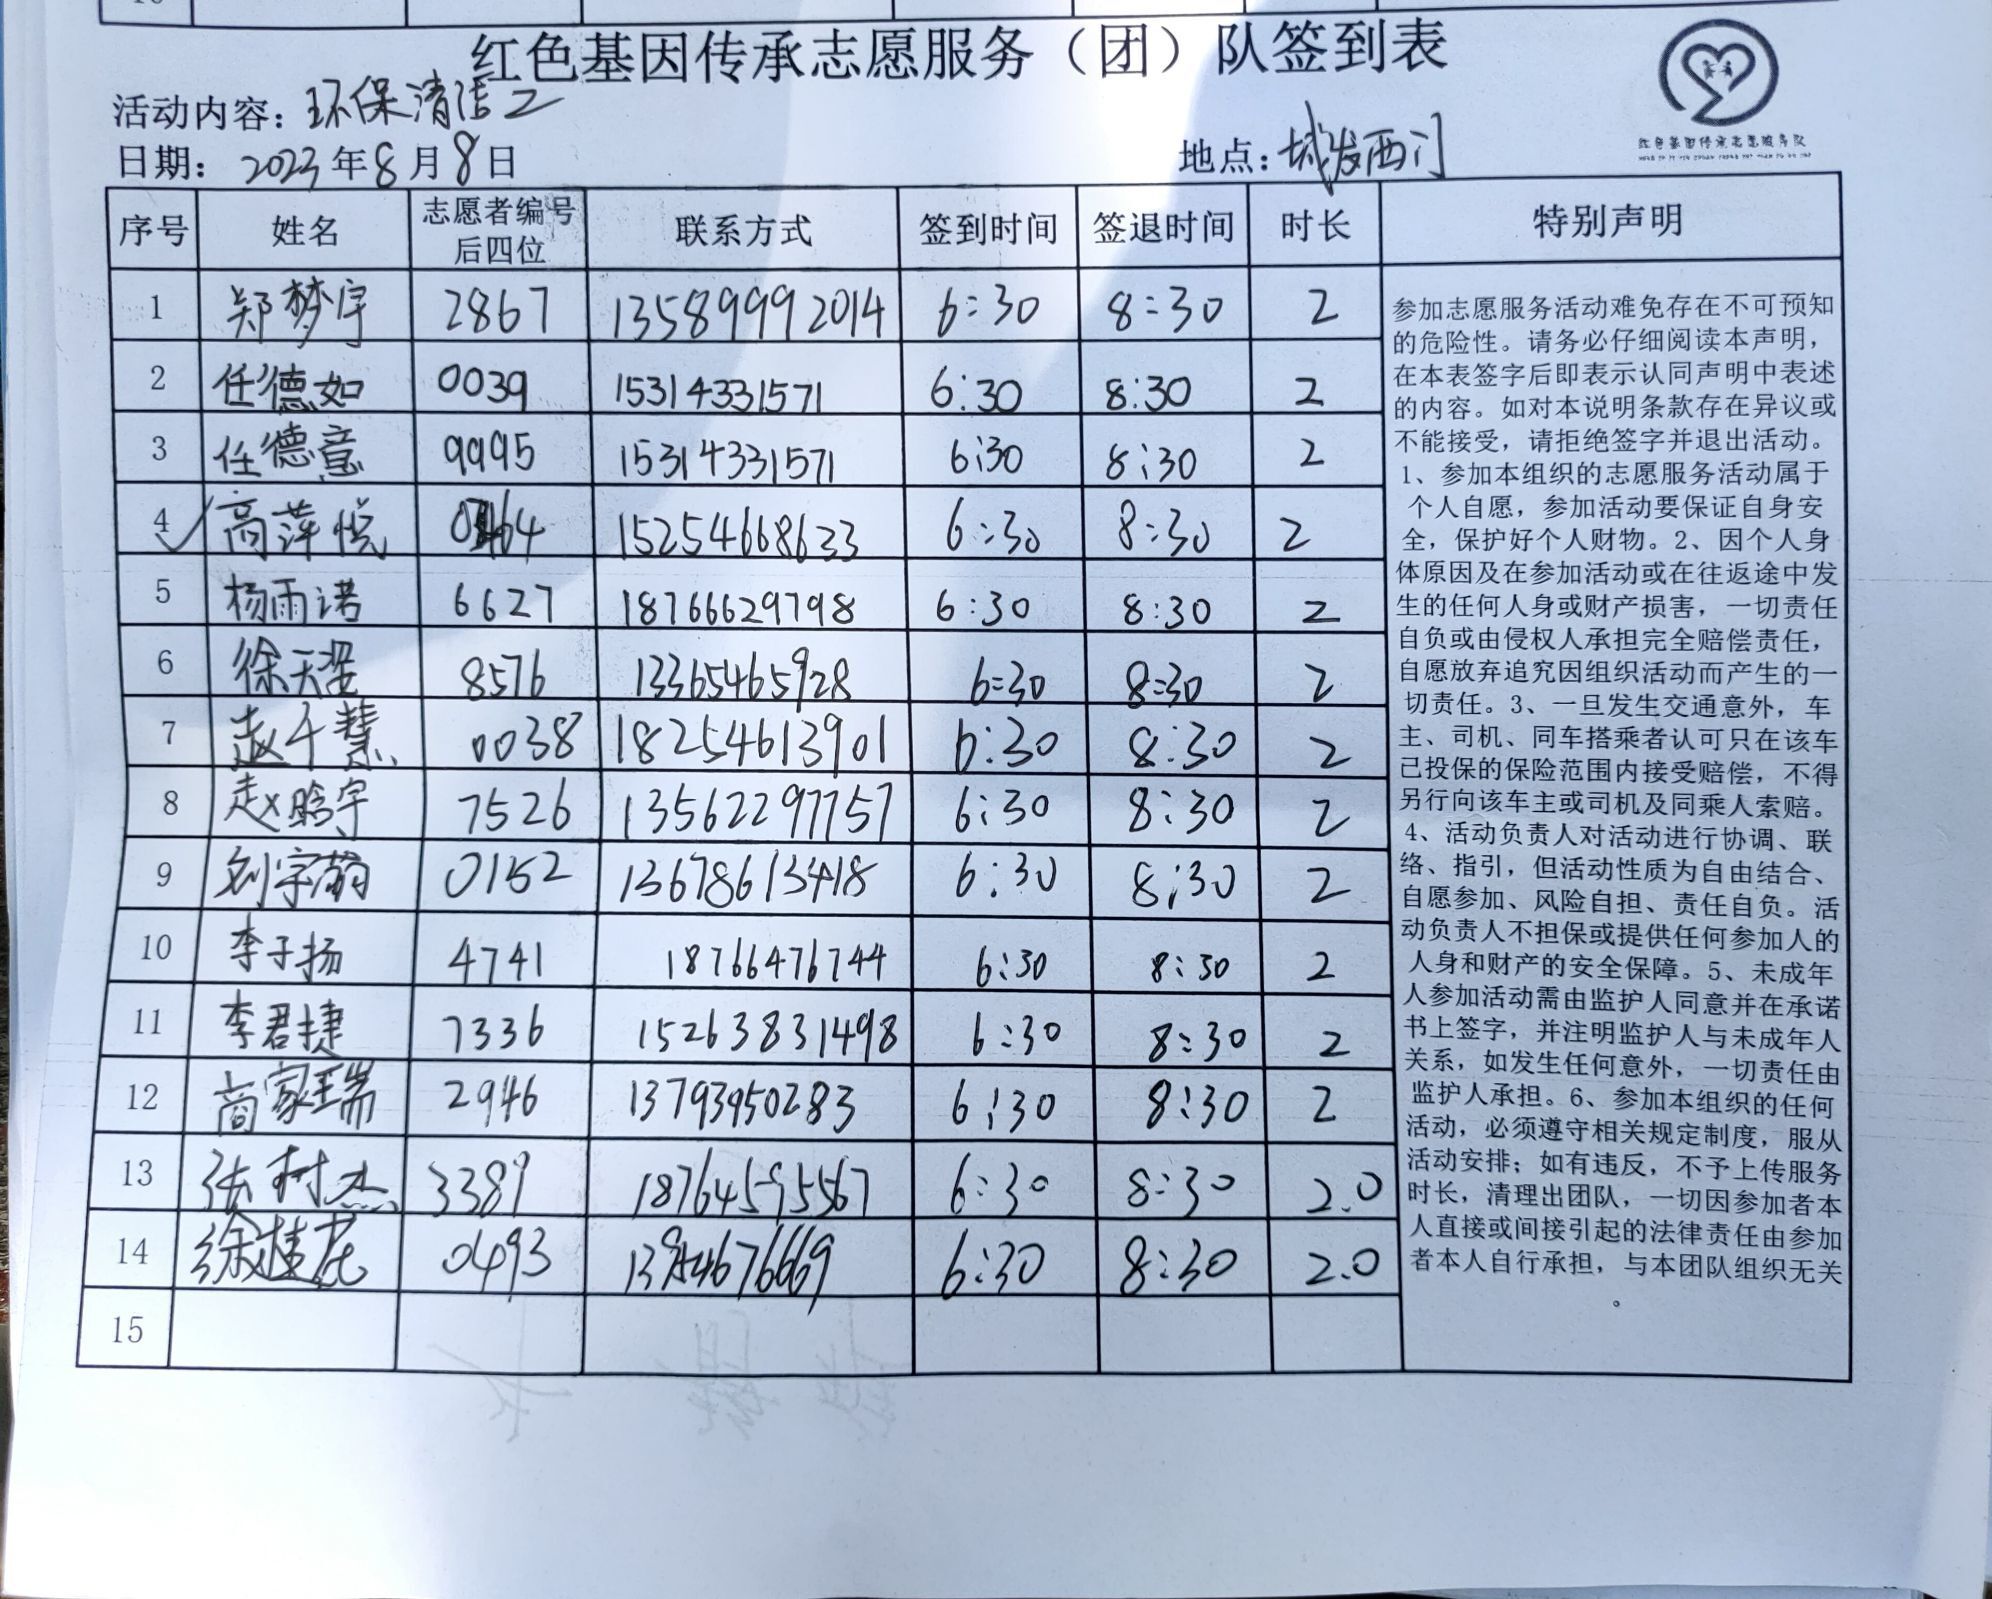 红色基因传承志愿服务（团）队签到表
活动内容：环保清洁2
日期：2023年8月8日 地点：城发西门
红色基因传承志愿服务队
序号 姓名 志愿者编号后四位 联系方式 签到时间 签退时间 时长 特别声明
1 郑梦宇 2867 13589992014 6:30 8:30 2
2 任德如 0039 15314331571 6:30 8:30 2
3 任德意 9995 15314331571 6:30 8:30 2
4 高萍悦 15254668633 6:30 8:30 2
5 杨雨诺 6627 18766629798 6:30 8:30 2
6 徐天 8576 13365465928 6:30 8:30 2
7 赵千慧 0038 18254613901 6:30 8:30 2
8 赵晗宇 7526 13562297757 6:30 8:30 2
9 刘宇 0152 13678613418 6:30 8:30 2
10 李子扬 4741 18766476744 6:30 8:30 2
11 李君捷 7336 15263831498 6:30 8:30 2
12 商家瑞 2946 13793950283 6:30 8:30 2
13 张树杰 3389 18764595567 6:30 8:30 2.0
14 徐桂花 0493 13954676669 6:30 8:30 2.0
15
参加志愿服务活动难免存在不可预知
的危险性。请务必仔细阅读本声明，
在本表签字后即表示认同声明中表述
的内容。如对本说明条款存在异议或
不能接受，请拒绝签字并退出活动。
1、参加本组织的志愿服务活动属于
个人自愿，参加活动要保证自身安
全，保护好个人财物。2、因个人身
体原因及在参加活动或在往返途中发
生的任何人身或财产损害，一切责任
自负或由侵权人承担完全赔偿责任，
自愿放弃追究因组织活动而产生的一
切责任。3、一旦发生交通意外，车
主、司机、同车搭乘者认可只在该车
已投保的保险范围内接受赔偿，不得
另行向该车主或司机及同乘人索赔。
4、活动负责人对活动进行协调、联
络、指引，但活动性质为自由结合、
自愿参加、风险自担、责任自负。活
动负责人不担保或提供任何参加人的
人身和财产的安全保障。5、未成年
人参加活动需由监护人同意并在承诺
书上签字，并注明监护人与未成年人
关系，如发生任何意外，一切责任由
监护人承担。6、参加本组织的任何
活动，必须遵守相关规定制度，服从
活动安排；如有违反，不予上传服务
时长，清理出团队，一切因参加者本
人直接或间接引起的法律责任由参加
者本人自行承担，与本团队组织无关
。